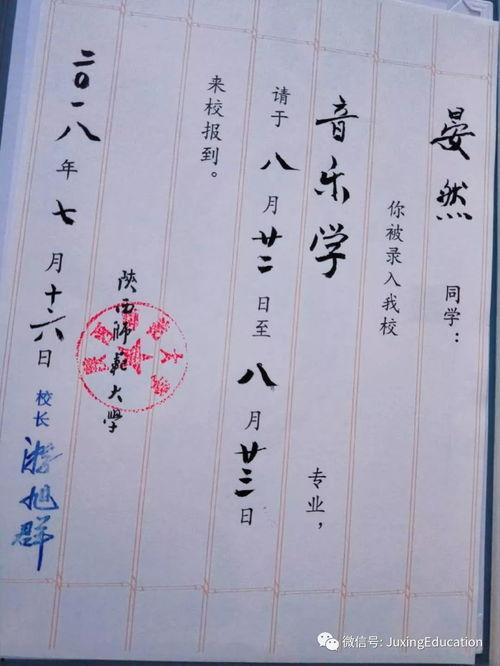 晏然同学：
你被录入我校
音乐学专业，
请于八月廿二日至八月廿三日
来校报到。
陕西师范大学
二〇一八年七月十六日
校长 游旭群
微信号: JuxingEducation